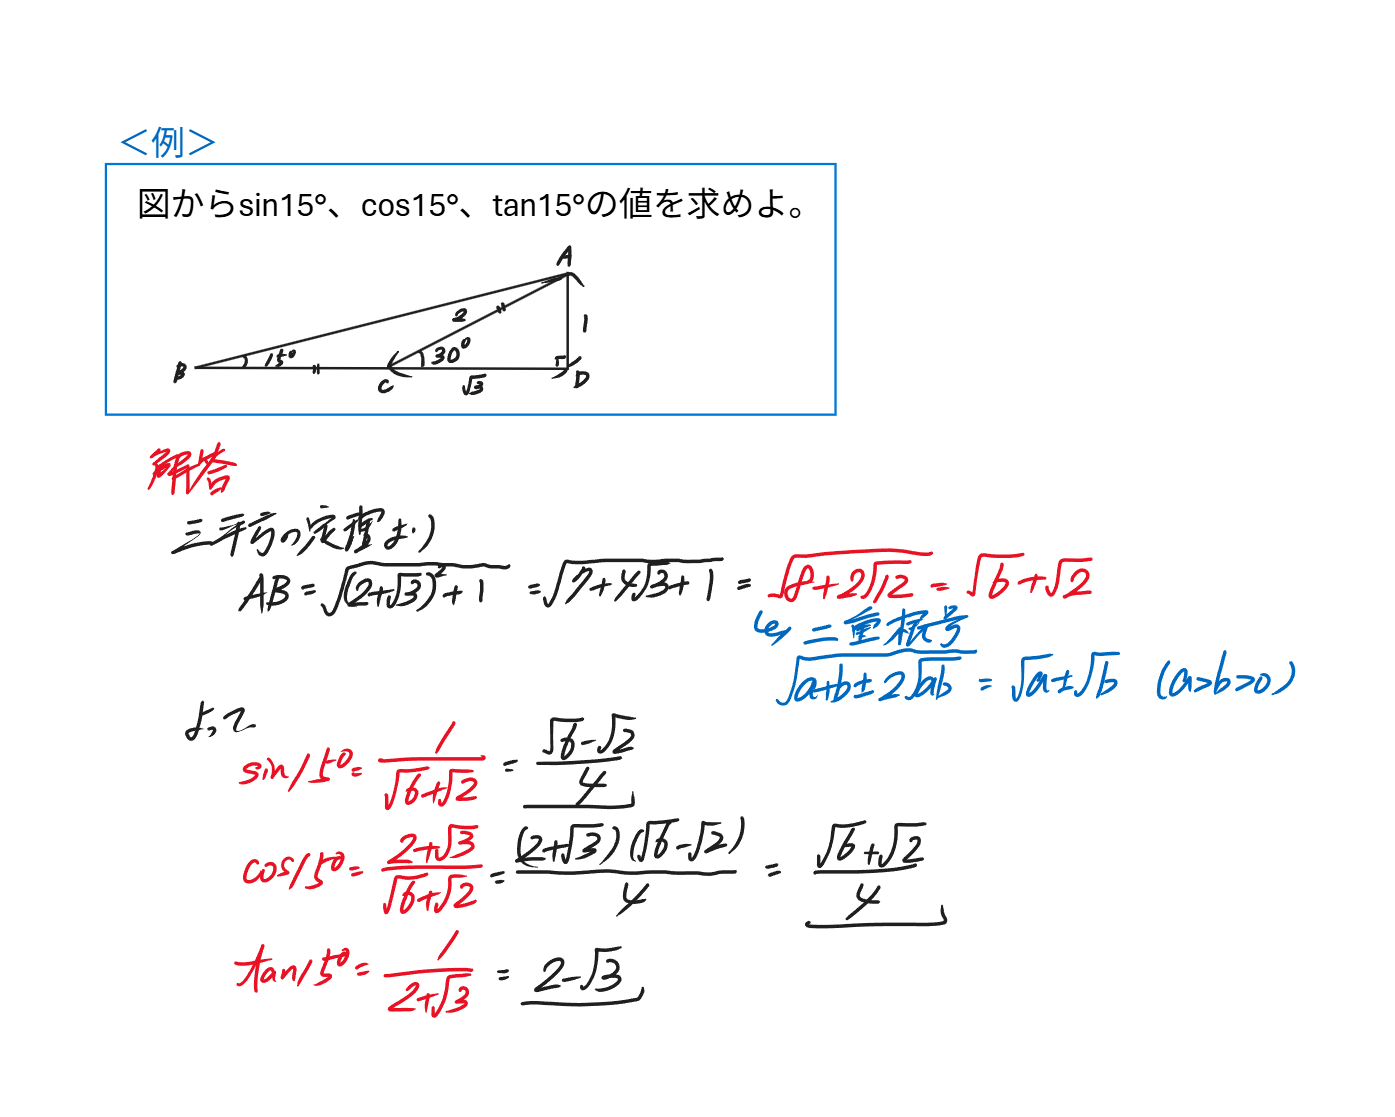 ＜例＞
図からsin15°、cos15°、tan15°の値を求めよ。
A
2
1
B 15° C 30° D
√3
解答
三平方の定理より
AB = √((2+√3)²+1) = √(7+4√3+1) = √(8+2√12) = √6+√2
↳ 二重根号
√(a+b±2√ab) = √a±√b (a>b>0)
よって
sin15° = 1/(√6+√2) = (√6-√2)/4
cos15° = (2+√3)/(√6+√2) = (2+√3)(√6-√2)/4 = (√6+√2)/4
tan15° = 1/(2+√3) = 2-√3